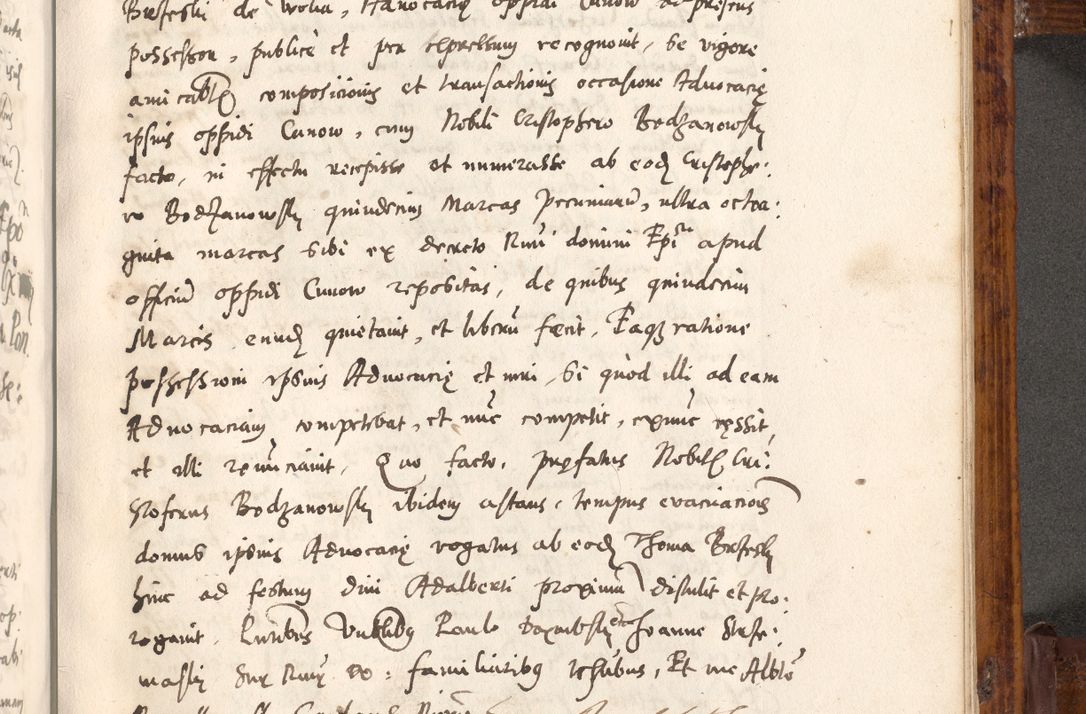 Brzeski de Wolia, Advocacię oppidi Cunow ad presens
possessor, publicè et per expressum recognouit, se vigore
amicabilis composicionis et transactionis occasione Aduocacię
ipsius oppidi Cunow, cum Nobili Cristophero Bodzanowsky
facto, in effectu recepisse et numerasse ab eodem Cristophe:
ro Bodzanowsky quindecim Marcas pecuniarum, ultra octoa:
ginta marcas sibi ex decreto Rmi domini Epi apud
officium oppidi Cunow repositas, de quibus quindecim
Marcis eundem quietauit, et liberum fecit, Eaque ratione
possessioni ipsius Aduocacię et iuri, si quod illi ad eam
Aduocaciam competebat, et nunc competit, exnunc cessit,
et illi renunciauit, Quo facto, pręfatus Nobilis Cri:
stoferus Bodzanowsky ibidem astans, tempus evacuacionis
domus ipsius Aduocacię rogatus ab eodem Thoma Brzesky
hinc ad festum diui Adalberti proximum distulit et pro:
rogauit, Pręsentibus Venerabilibus Paulo et Joanne Strze:
masky Suę Rmę Do: familiaribus testibus, Et me Alberto